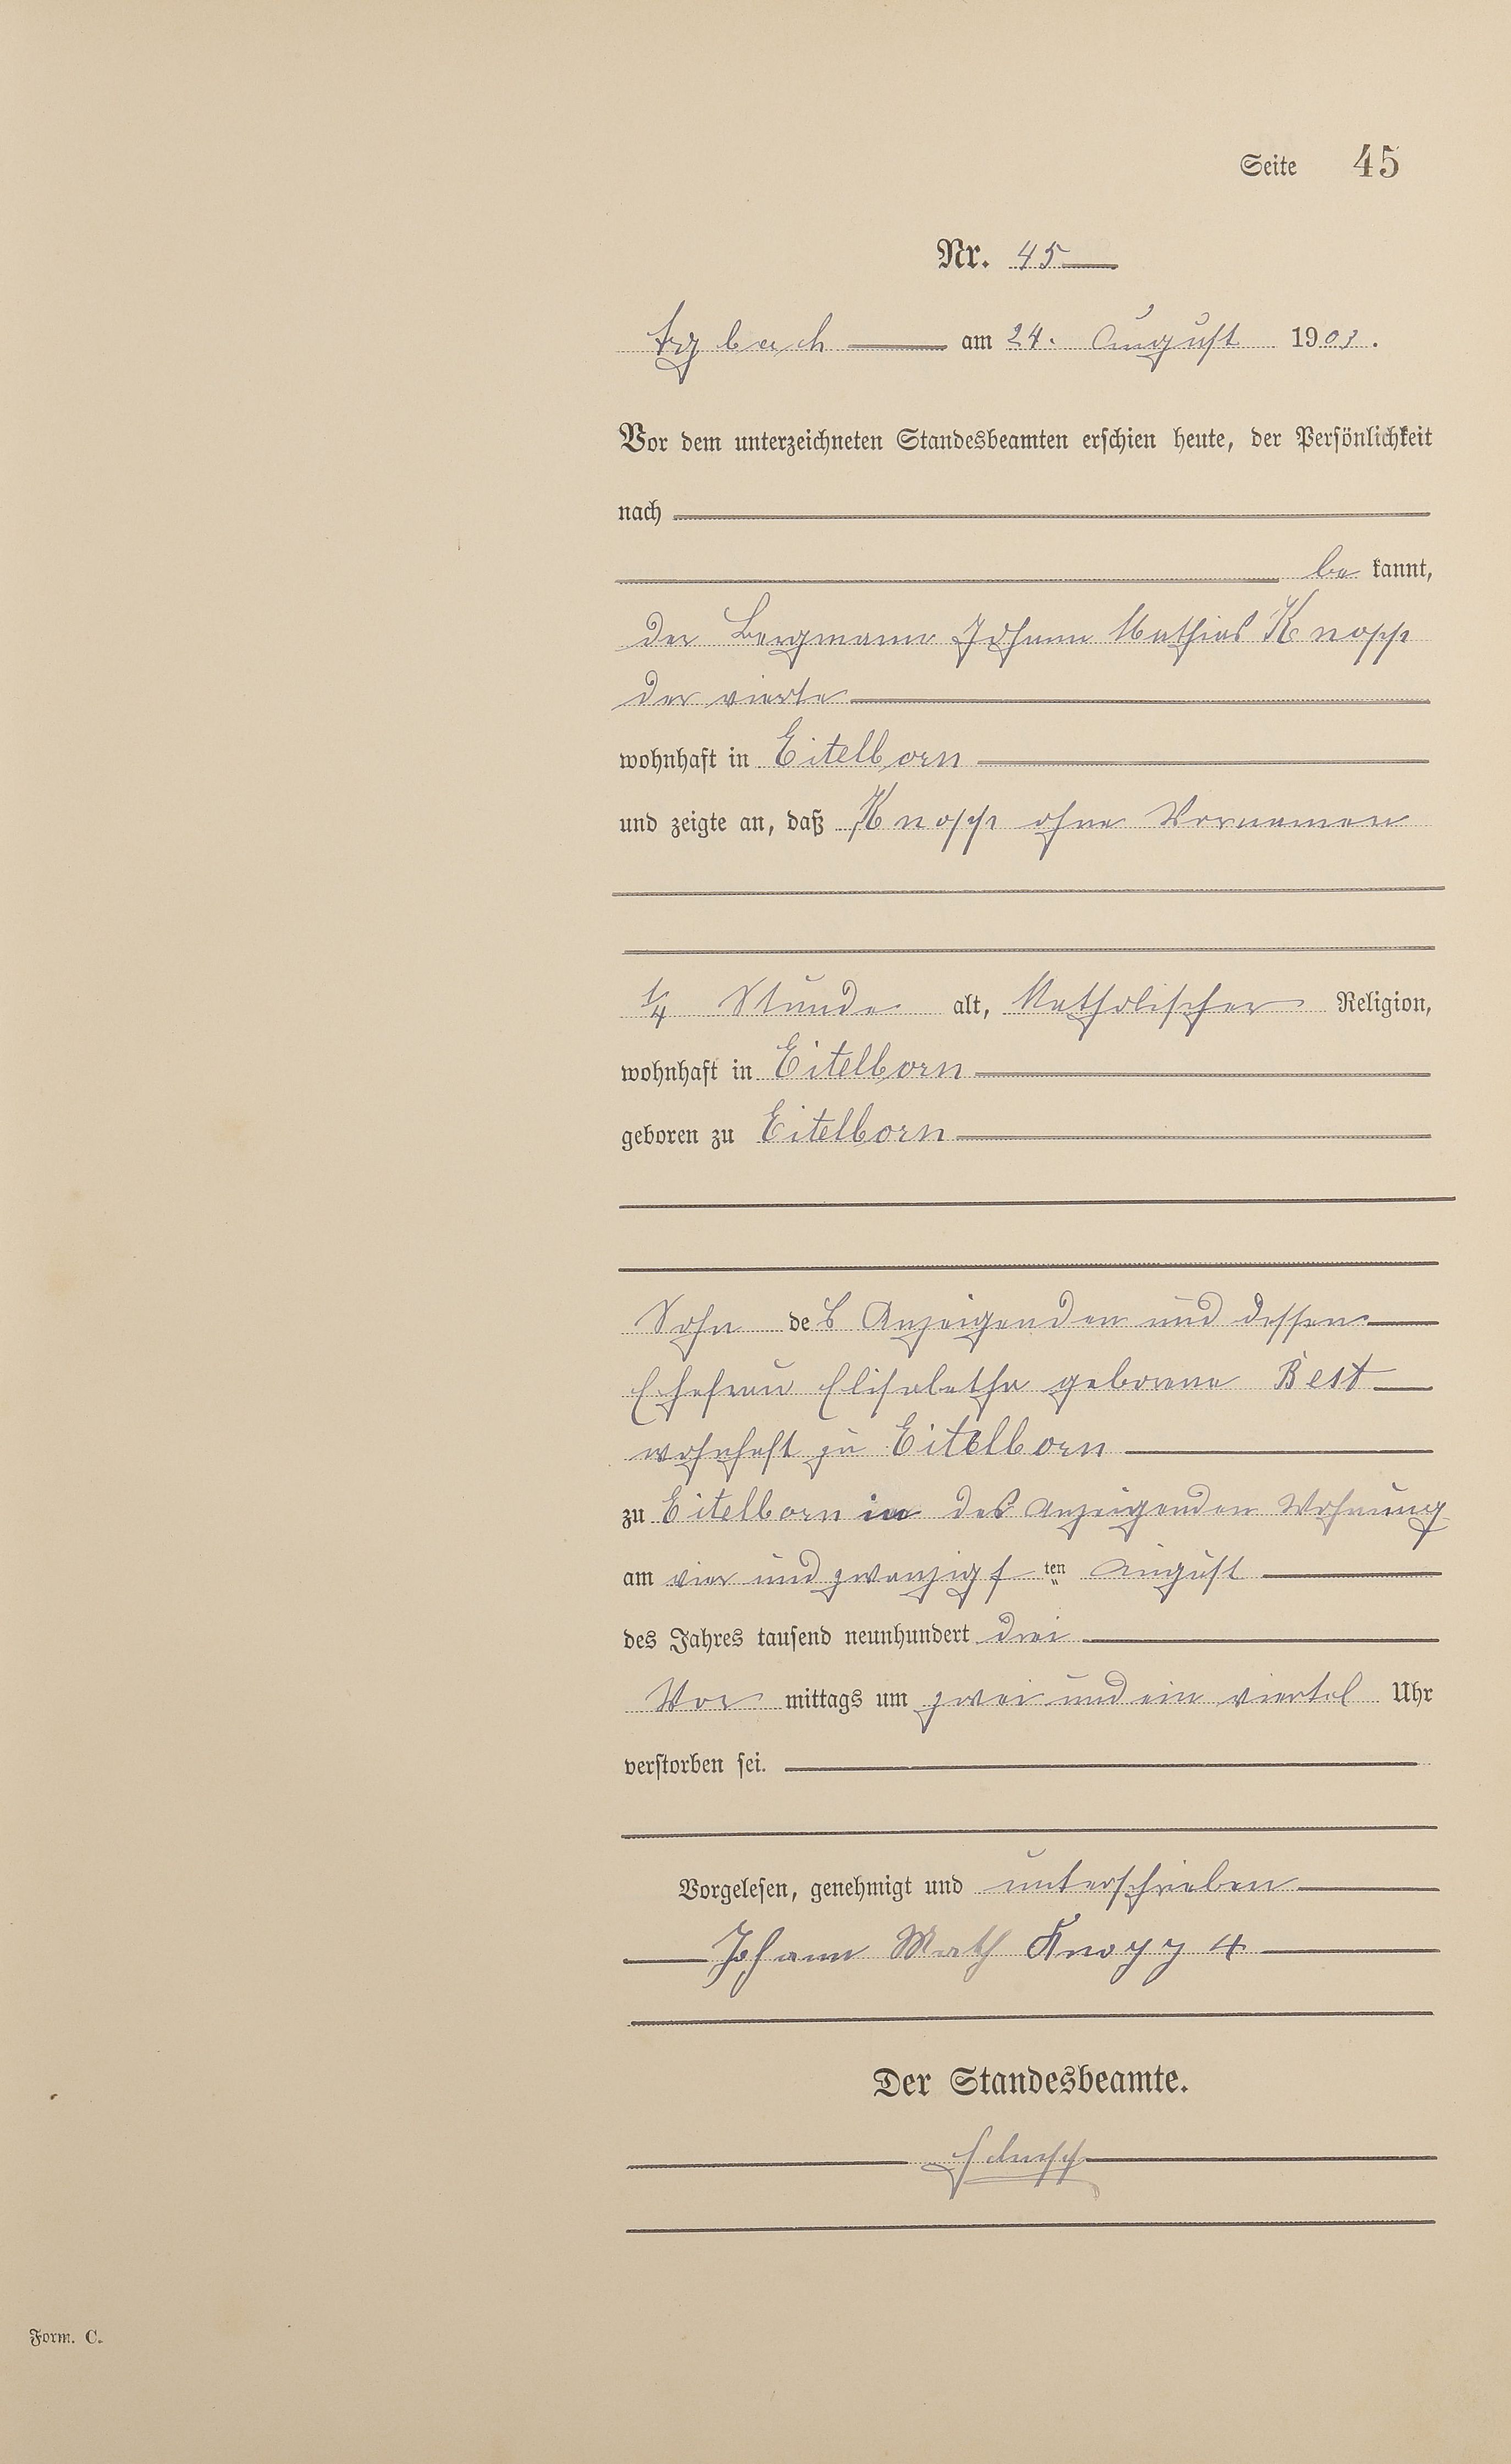 Seite 45
Nr. 45
Arzbach am 24. August 1903.
Vor dem unterzeichneten Standesbeamten erschien heute, der Persönlichkeit
nach
be kannt,
der Bergmann Johann Mathias Knopp
der vierte
wohnhaft in Eitelborn
und zeigte an, daß Knopp ohne Vornamen
1/4 Stunde alt, Katholischer Religion,
wohnhaft in Eitelborn
geboren zu Eitelborn
Sohn des Anzeigenden und dessen
Ehefrau Elisabetha geborene Best
wohnhaft zu Eitelborn
zu Eitelborn in des Anzeigenden Wohnung
am vier und zwanzigsten August
des Jahres tausend neunhundert drei
Vor mittags um zwei und ein viertel Uhr
verstorben sei.
Vorgelesen, genehmigt und unterschrieben
Johann Math Knopp 4
Der Standesbeamte.
Form. C.